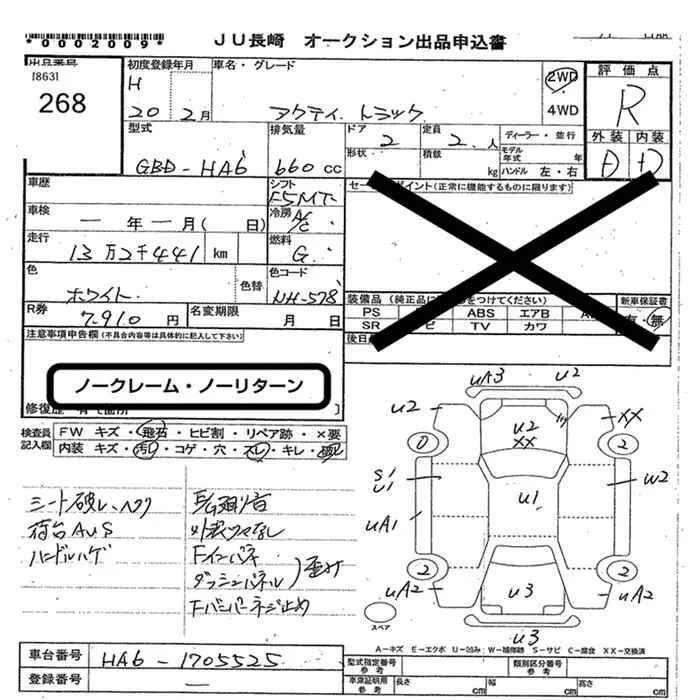 *0002009*
JU長崎 オークション出品申込書
[863]
268
初度登録年月
車名・グレード
H 20 2月
アクティ トラック
2WD
4WD
評価点
R
型式
GBD-HA6
排気量
660cc
ドア
2
定員
2 人
ディーラー・並行
形状
積載
kg
モデル年式
年
ハンドル 左・右
外装
内装
D
D
車歴
シフト
F5MT
セールスポイント(正常に機能するものに限ります)
車検
一年一月( 日)
冷房
A/C
走行
13万2千441km
燃料
G
色
ホワイト
色替
色コード
NH-578
R券
7.910円
名変期限
月 日
装備品
PS
ABS
エアB
SR
TV
カワ
新車保証書
有・無
注意事項申告欄(不具合内容等は具体的に記入して下さい)
ノークレーム・ノーリターン
検査員記入欄
FW キズ・飛石・ヒビ割・リペア跡・×要
内装 キズ・汚レ・コゲ・穴・スレ・キレ・破レ
シート破レ、ヘタリ
荷台AUS
ハンドルハゲ
外装ツヤなし
Fインパネ
ダッシュパネル
歪み
Fバンパーネジ止め
UA3
U2
U2
U2
XX
XX
0
2
S1
U1
U1
W2
UA1
2
2
UA2
U3
UA2
U3
スペア
A-キズ E-エクボ U-凹み W-補修跡 S-サビ C-腐食 XX-交換済
車台番号
HA6-1705525
登録番号
型式指定番号
参考
類別区分番号
参考
車庫証明用
参考
長さ
cm
幅
cm
高さ
cm